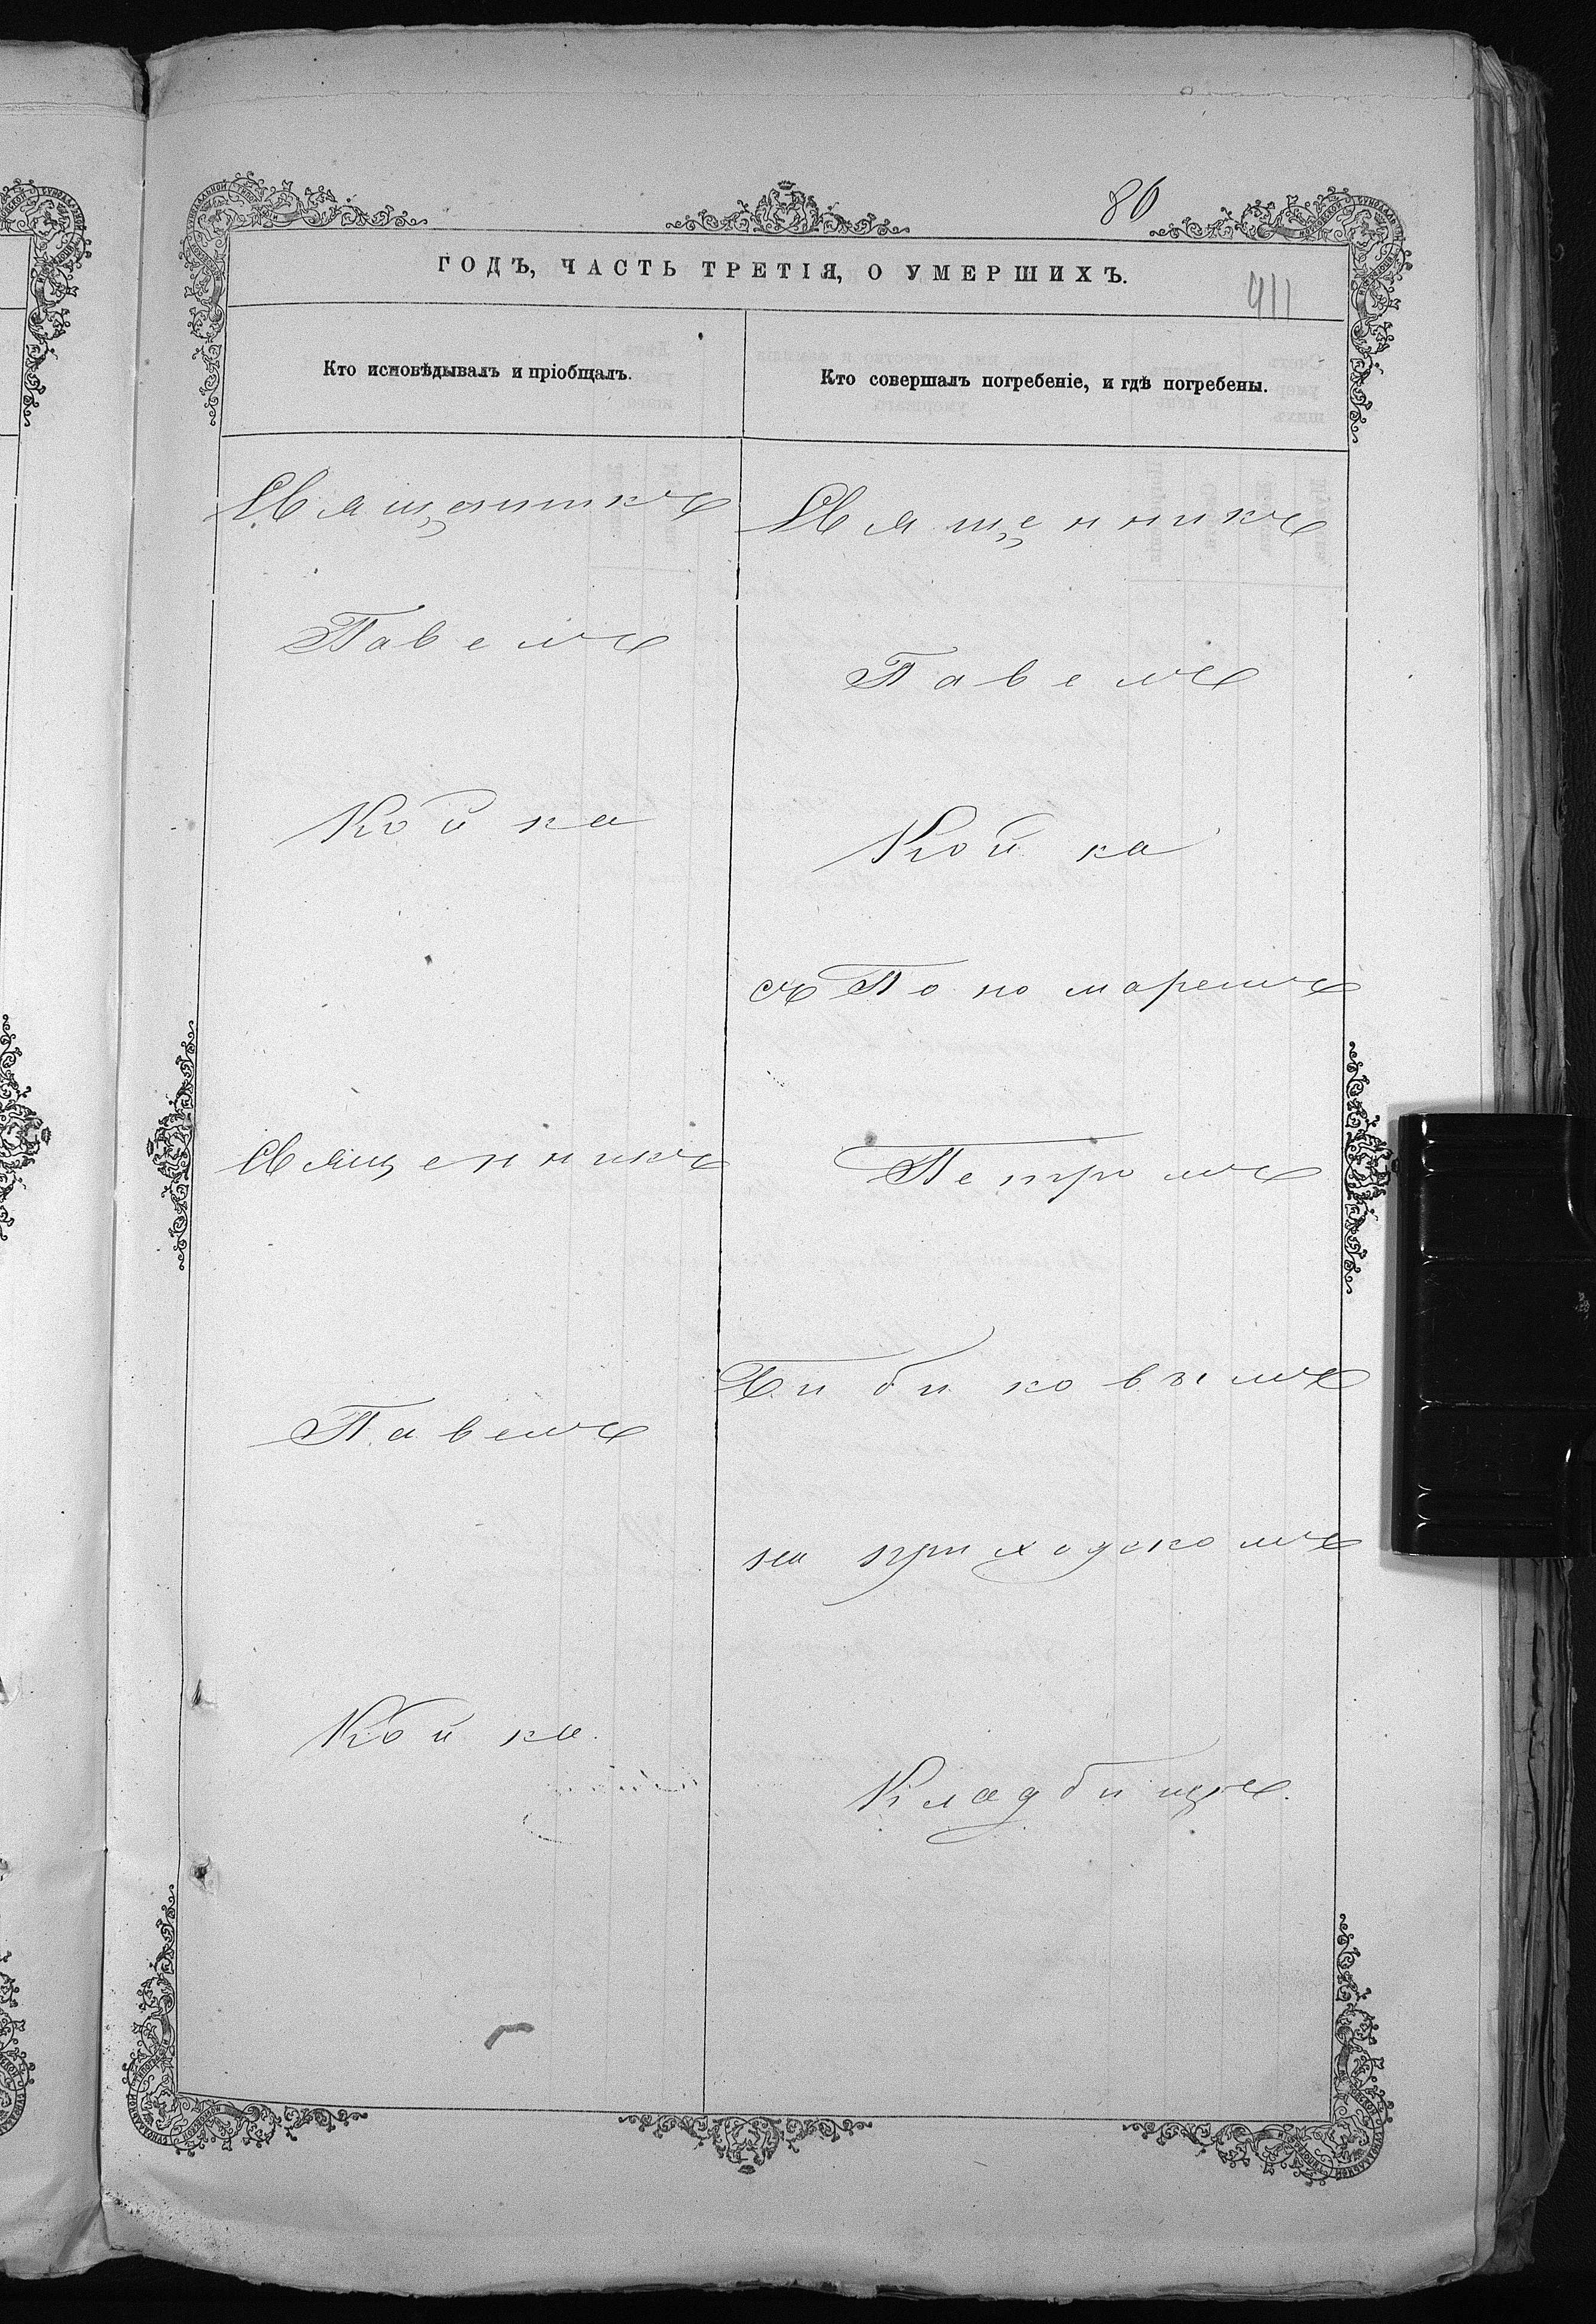 86
ГОДЪ, ЧАСТЬ ТРЕТІЯ, О УМЕРШИХЪ.
911
Кто исповѣдывалъ и пріобщалъ.
Кто совершалъ погребеніе, и гдѣ погребены.
Священникъ
Павелъ
Койка
Священникъ
Павелъ
Койка.
Священникъ
Павелъ
Койка
съ Пономаремъ
Петромъ
Бибиковымъ
на приходскомъ
Кладбищѣ.